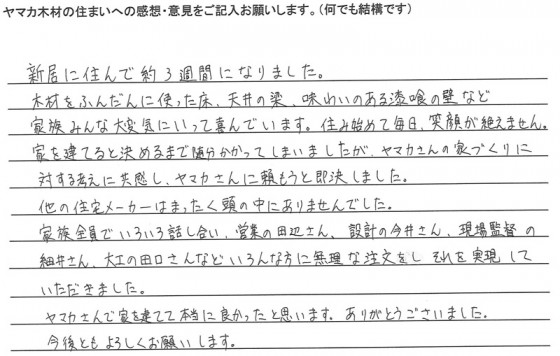 ヤマカ木材の住まいへの感想・意見をご記入お願いします。(何でも結構です)
新居に住んで約3週間になりました。
木材をふんだんに使った床、天井の梁、味わいのある漆喰の壁など
家族みんな大変気にいって喜んでいます。住み始めて毎日、笑顔が絶えません。
家を建てると決めるまで随分かかってしまいましたが、ヤマカさんの家づくりに
対する考えに共感し、ヤマカさんに頼もうと即決しました。
他の住宅メーカーはまったく頭の中にありませんでした。
家族全員でいろいろ話し合い、営業の田辺さん、設計の今井さん、現場監督の
細井さん、大工の田口さんなどいろんな方に無理な注文をし それを実現して
いただきました。
ヤマカさんで家を建てて本当に良かったと思います。ありがとうございました。
今後ともよろしくお願いします。